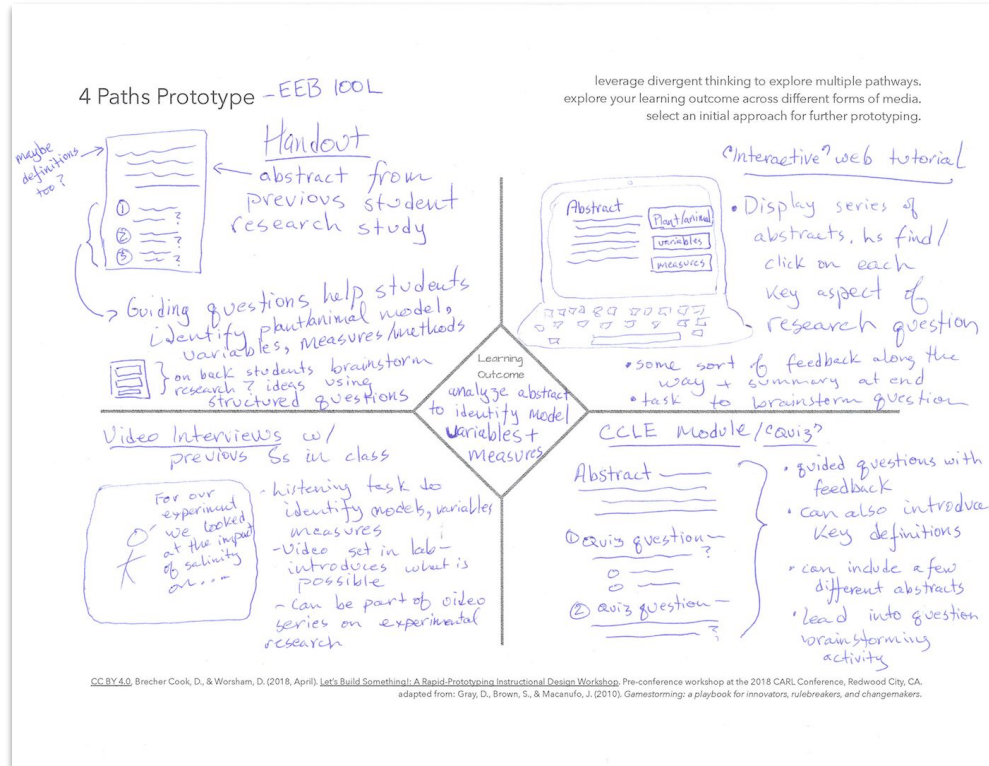 4 Paths Prototype - EEB 100L
leverage divergent thinking to explore multiple pathways.
explore your learning outcome across different forms of media.
select an initial approach for further prototyping.
maybe
definitions
too?
Handout
abstract from
previous student
research study
①
?
②
?
③
?
Guiding questions help students
identify plant/animal model,
variables, measures/methods
on back students brainstorm
research ? ideas using
structured questions
"Interactive" web tutorial
Abstract
Plant/animal
variables
measures
• Display series of
abstracts, hs find/
click on each
key aspect of
research question
• some sort of feedback along the
way + summary at end
• task to brainstorm question
Learning
Outcome
analyze abstract
to identify model
variables +
measures
Video Interviews w/
previous Ss in class
For our
experiment
we looked
at the impact
of salinity
on....
- listening task to
identify models, variables
measures
- Video set in lab -
introduces what is
possible
- can be part of video
series on experimental
research
CCLE Module/"Quiz"
Abstract
① Quiz question
?
② Quiz question
?
• guided questions with
feedback
• can also introduce
key definitions
• can include a few
different abstracts
• lead into question
brainstorming
activity
CC BY 4.0, Brecher Cook, D., & Worsham, D. (2018, April). Let's Build Something!: A Rapid-Prototyping Instructional Design Workshop. Pre-conference workshop at the 2018 CARL Conference, Redwood City, CA.
adapted from: Gray, D., Brown, S., & Macanufo, J. (2010). Gamestorming: a playbook for innovators, rulebreakers, and changemakers.